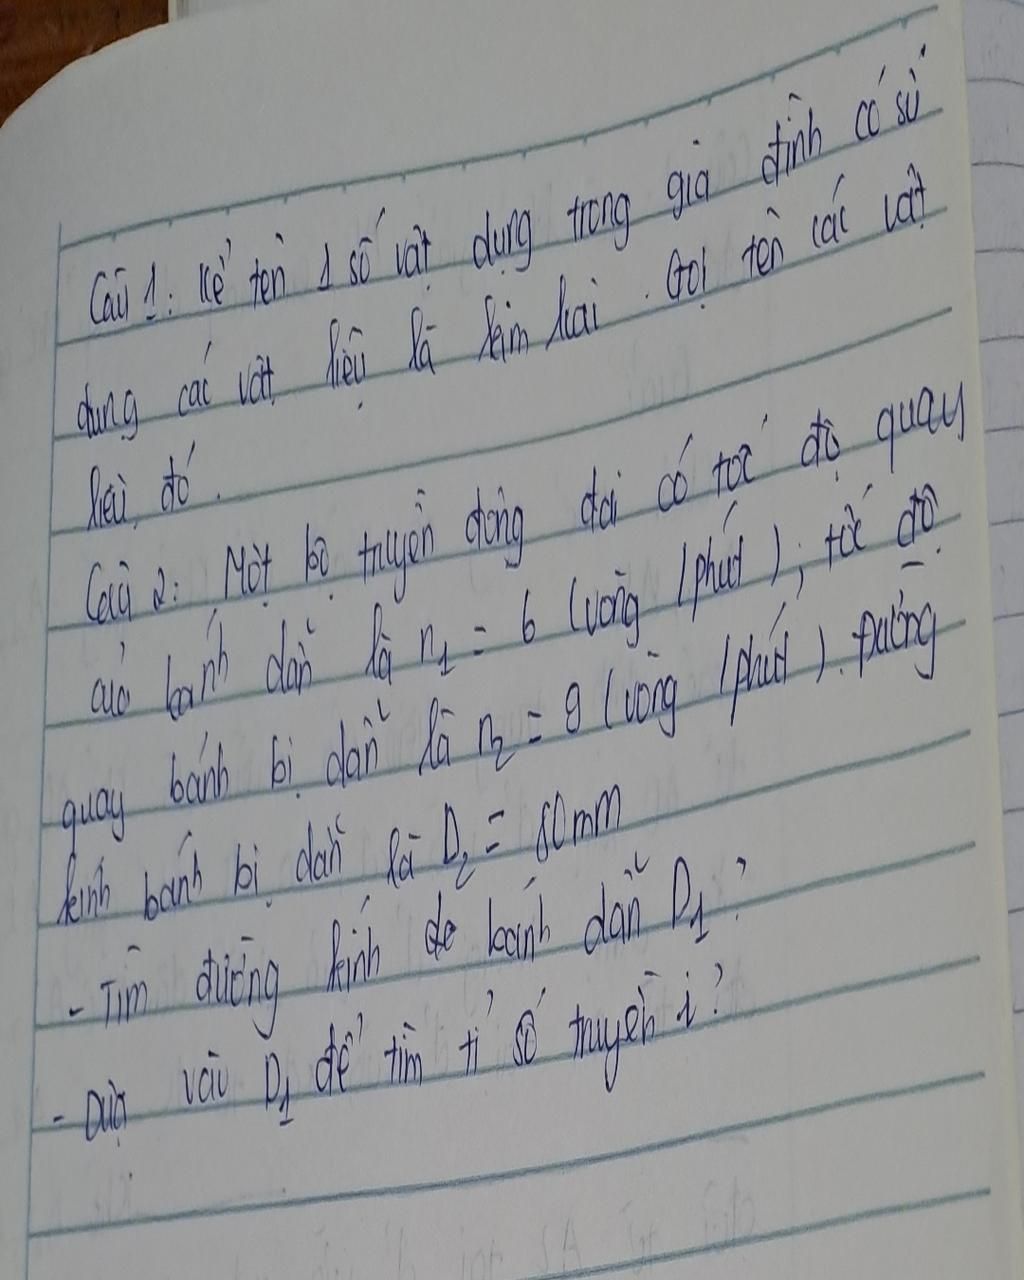 Câu 1: Kể tên 1 số vật dụng trong gia đình có sử
dụng các vật liệu là kim loại. Gọi tên các vật
liệu đó.
Câu 2: Một bộ truyền động đai có tốc độ quay
của bánh dẫn là n1 = 6 (vòng/phút), tốc độ
quay bánh bị dẫn là n2 = 9 (vòng/phút). Đường
kính bánh bị dẫn là D2 = 80mm
- Tìm đường kính bánh dẫn D1?
- Dựa vào D1 để tìm tỉ số truyền i?